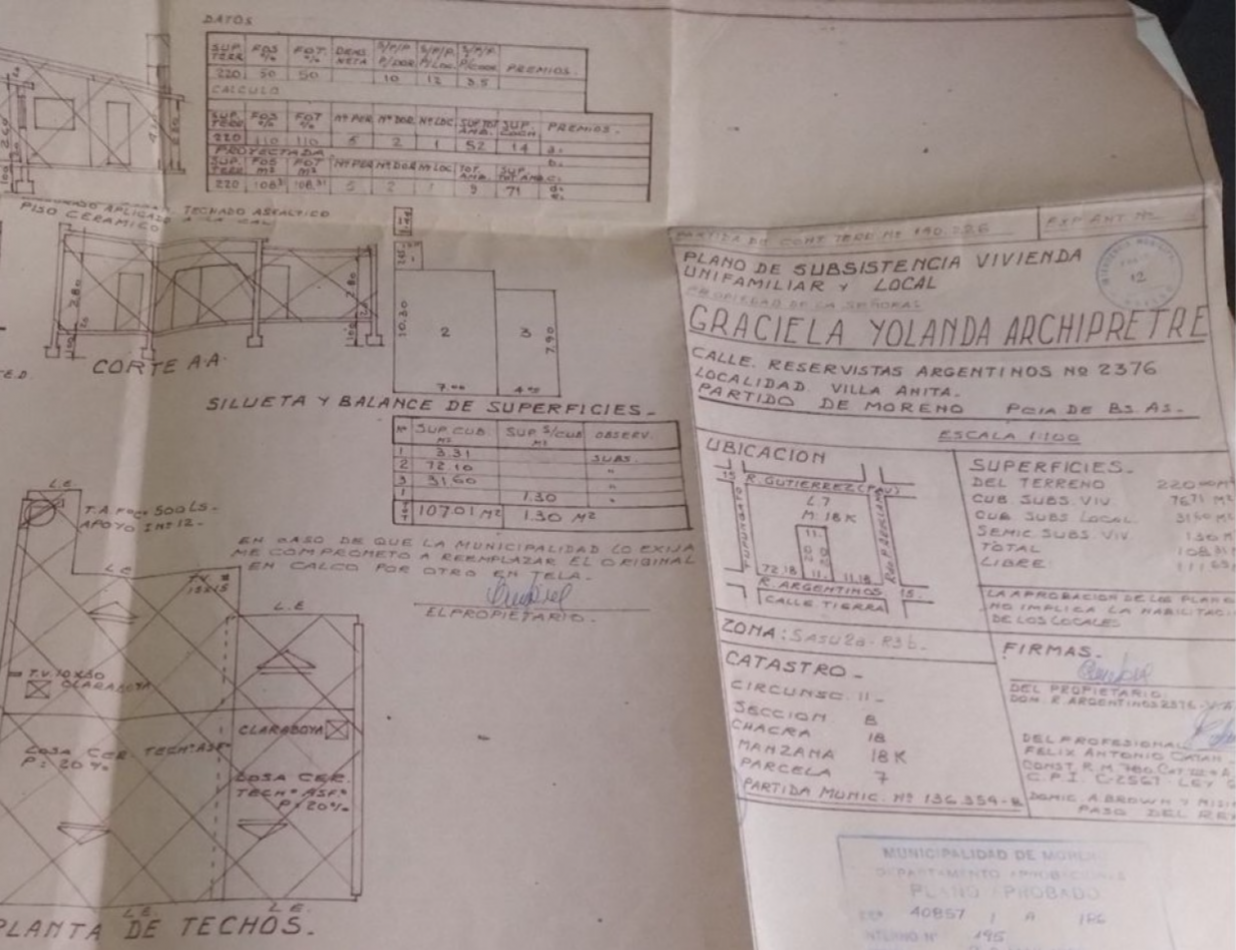 DATOS
SUP. TERR FOS % FOT. % DENS NETA S/P/P. P/DOR. S/P/P. P/LOC. S/P/P. P/COCH. PREMIOS.
220 50 50 10 12 3.5
CALCULO
SUP. TERR FOS % FOT % Nº PER Nº DOR. Nº LOC. SUP TOT AMB. SUP. COCH. PREMIOS.
220 110 110 5 2 1 52 14 a.
PROYECTADA b.
SUP. TERR FOS M² FOT M² Nº PER Nº DOR Nº LOC. TOT. AMB. SUP. TOT AMB. c.
220 108.31 108.31 5 2 1 9 71 d.
e.
PISO CERAMICO
APLICADO A LA CAL
TECHADO ASFALTICO
2.80
2.80
CORTE A-A.
10.30
2
3
7.90
7.00
4.00
SILUETA Y BALANCE DE SUPERFICIES.
Nº SUP. CUB. M² SUP S/CUB M² OBSERV.
1 3.31 SUBS.
2 72.10 "
3 31.60 "
1 1.30 "
TOT 107.01 M² 1.30 M²
EN CASO DE QUE LA MUNICIPALIDAD LO EXIJA
ME COMPROMETO A REEMPLAZAR EL ORIGINAL
EN CALCO POR OTRO EN TELA.
EL PROPIETARIO.
L.E.
T.A. 500 LS.
APOYO 12.
L.E.
T.V. 15x15
L.E.
T.V. 10x30
CLARABOYA
CLARABOYA
LOSA CER. TECHº ASFº
P: 20%
LOSA CER.
TECHº ASFº
P: 20%
L.E.
L.E.
PLANTA DE TECHOS.
EXP. ANT. Nº
PARTIDA DE CONT. TERR. Nº 190.226
PLANO DE SUBSISTENCIA VIVIENDA
UNIFAMILIAR Y LOCAL
12
PROPIEDAD DE LA SEÑORA:
GRACIELA YOLANDA ARCHIPRETRE
CALLE. RESERVISTAS ARGENTINOS Nº 2376
LOCALIDAD VILLA ANITA.
PARTIDO DE MORENO PCIA DE BS. AS.
ESCALA 1:100
UBICACION
15 R. GUTIERREZ (PAV)
L. 7
M: 18 K
TUPUNGATO
11.
20 20
72.18 11. 11.18
R. ARGENTINOS 15.
CALLE TIERRA
SUPERFICIES.
DEL TERRENO 220.00 M²
CUB SUBS. VIV. 76.71 M²
CUB. SUBS LOCAL. 31.60 M²
SEMIC. SUBS. VIV. 1.30 M²
TOTAL 108.31
LIBRE: 111.69
LA APROBACION DE LOS PLANOS
NO IMPLICA LA HABILITACI
DE LOS LOCALES
ZONA: SASU2a-R3b.
CATASTRO.
CIRCUNSC. II
SECCION B
CHACRA 18
MANZANA 18 K
PARCELA 7
PARTIDA MUNIC. Nº 136.354-8
FIRMAS.
DEL PROPIETARIO.
DOM. R. ARGENTINOS 2376
DEL PROFESIONAL
FELIX ANTONIO CATAN
CONST. R.M. 780
C.P.I. C-2561. LEY
DOMIC. A. BROWN Y
PASO DEL REY
MUNICIPALIDAD DE MORENO
DEPARTAMENTO APROBACIONES
PLANO APROBADO
40857 / A / 186
195